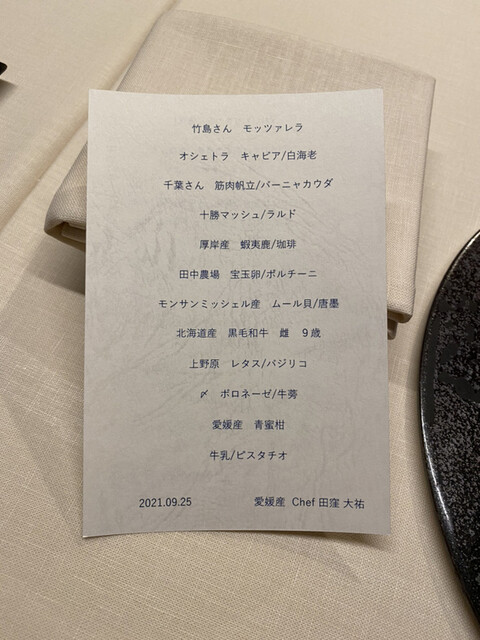 竹島さん　モッツァレラ
オシェトラ　キャビア/白海老
千葉さん　筋肉帆立/バーニャカウダ
十勝マッシュ/ラルド
厚岸産　蝦夷鹿/珈琲
田中農場　宝玉卵/ポルチーニ
モンサンミッシェル産　ムール貝/唐墨
北海道産　黒毛和牛　雌　９歳
上野原　レタス/バジリコ
〆　ボロネーゼ/牛蒡
愛媛産　青蜜柑
牛乳/ピスタチオ
2021.09.25　愛媛産 Chef 田窪 大祐